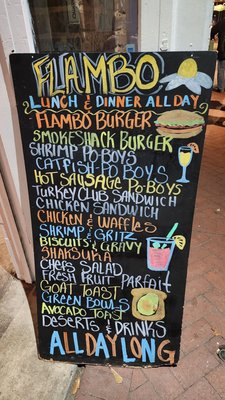 FLAMBO
LUNCH & DINNER ALL DAY
FLAMBO BURGER
SMOKESHACK BURGER
SHRIMP PO-BOYS
CATFISH PO BOYS
HOT SAUSAGE PO-BOYS
TURKEY CLUB SANDWICH
CHICKEN SANDWICH
CHICKEN & WAFFLES
SHRIMP & GRITZ
BISCUITS & GRAVY
SHAKSUKA
CHEFS SALAD
FRESH FRUIT PARFAIT
GOAT TOAST
GREEN BOWLS
AVOCADO TOAST
DESERTS & DRINKS
ALL DAY LONG